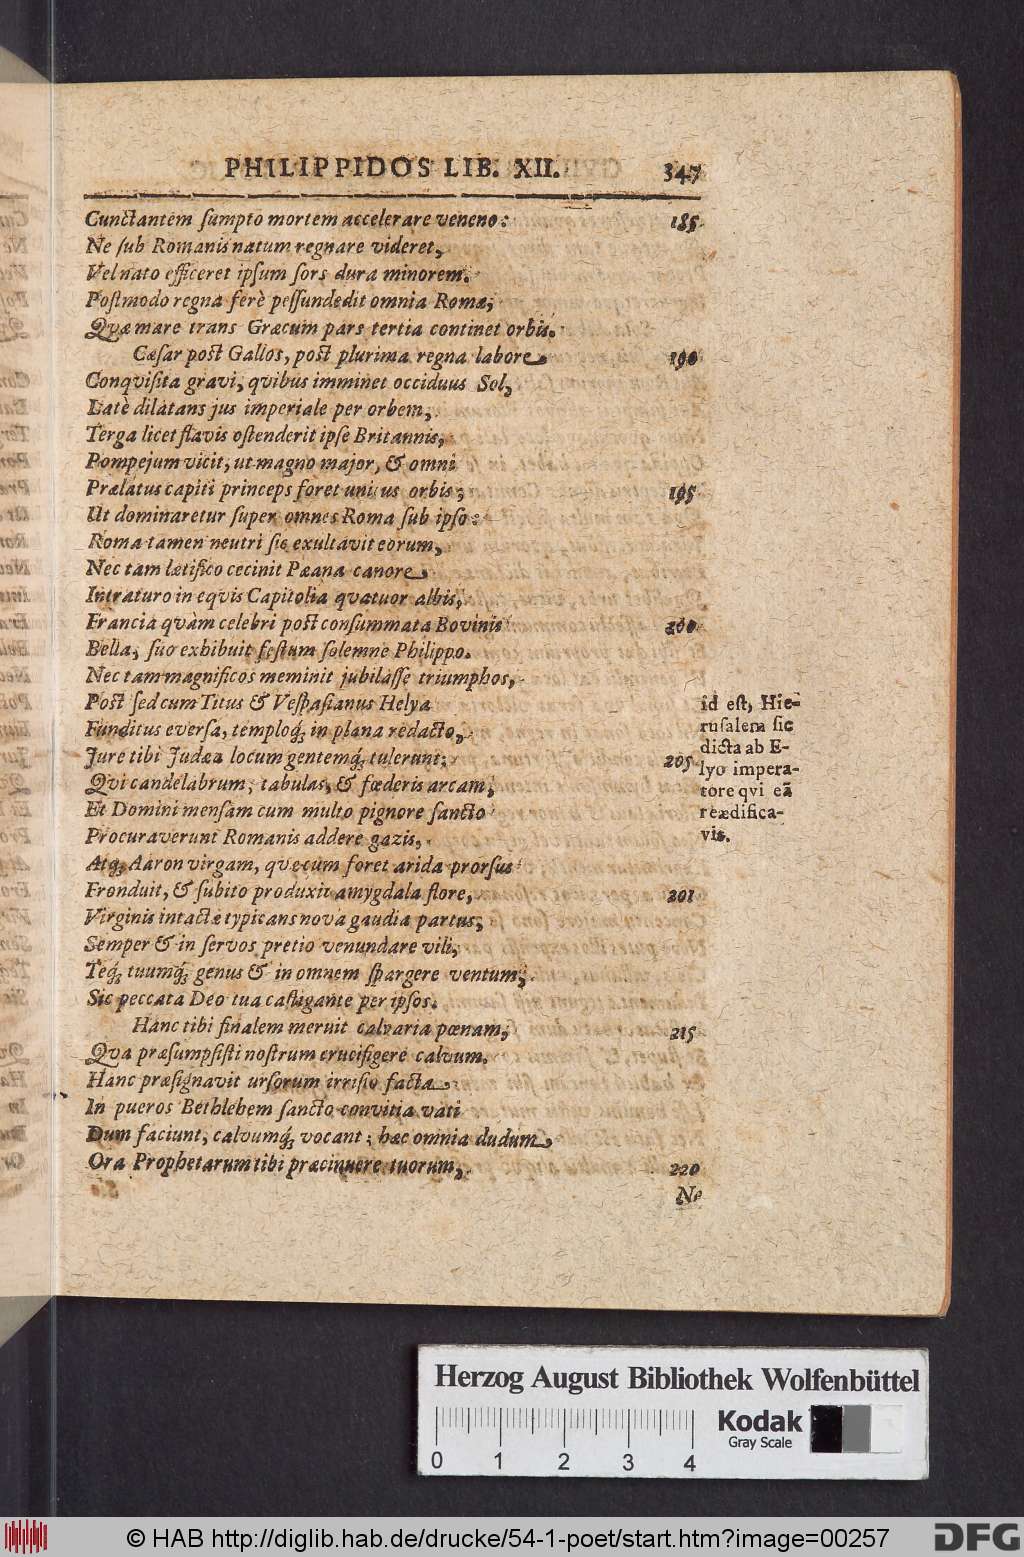 PHILIPPIDOS LIB. XII. 347
Cunctantem ſumpto mortem accelerare veneno: 185
Ne ſub Romanis natum regnare videret,
Vel nato efficeret ipſum ſors dura minorem.
Poſtmodo regna ferè peſſundedit omnia Roma,
Quæ mare trans Græcum pars tertia continet orbis.
Cæſar poſt Gallos, poſt plurima regna labore 190
Conquiſita gravi, quibus imminet occiduus Sol,
Latè dilatans jus imperiale per orbem,
Terga licet flavis oſtenderit ipſe Britannis,
Pompejum vicit, ut magno major, & omni
Prælatus capiti princeps foret unicus orbis; 195
Ut dominaretur ſuper omnes Roma ſub ipſo:
Roma tamen neutri ſic exultavit eorum,
Nec tam lætifico cecinit Pæana canore
Intraturo in eqvis Capitolia qvatuor albis,
Francia quàm celebri poſt conſummata Bovinis 200
Bella, ſuo exhibuit feſtum ſolemne Philippo.
Nec tam magnificos meminit jubilaſſe triumphos,
Poſt ſed cum Titus & Veſpaſianus Helya
Funditus everſa, temploq́; in plana redacto,
Jure tibi Judæa locum gentemq́; tulerunt; 205
Qvi candelabrum, tabulas, & fœderis arcam,
Et Domini menſam cum multo pignore ſancto
Procuraverunt Romanis addere gazis,
Atq́; Aaron virgam, quæ cum foret arida prorſus
Fronduit, & ſubito produxit amygdala flore, 201
Virginis intactæ typicans nova gaudia partus,
Semper & in ſervos pretio venundare vili,
Teq́; tuumq́; genus & in omnem ſpargere ventum,
Sic peccata Deo tua caſtigante per ipſos.
Hanc tibi finalem meruit calvaria pœnam, 215
Qva præſumpſiſti noſtrum crucifigere calvum.
Hanc præſignavit urſorum irriſio facta
In pueros Bethlehem ſancto convitia vati
Dum faciunt, calvumq́; vocant; hæc omnia dudum
Ora Prophetarum tibi præcinuere tuorum, 220
Ne
id eſt, Hie-
ruſalem ſic
dicta ab E-
lyo impera-
tore qvi eã
reædifica-
vit.
Herzog August Bibliothek Wolfenbüttel
Kodak
Gray Scale
0 1 2 3 4
© HAB http://diglib.hab.de/drucke/54-1-poet/start.htm?image=00257
DFG